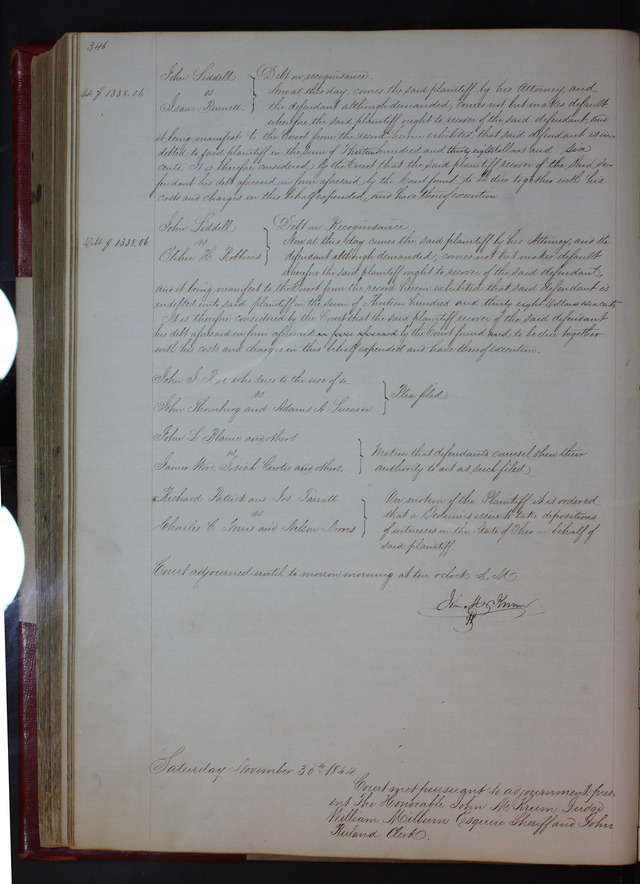 346
John Liddell } Debt on recognisance.
Deb of 1338.06 vs Now at this day comes the said plaintiff by his Attorney, and
Isaac the defendant although demanded, comes not but makes default
wherefore, the said plaintiff ought to recover of the said defendant, and
it being manifest to the Court from the record herein exhibited that said defendant is in
debted to said plaintiff in the sum of Thirteen hundred and thirty eight dollars and six
cents. It is therefore considered by the Court that the said plaintiff recover of the said de
fendant his debt aforesaid in form aforesaid by the Court found to be due together with his
costs and charges in this behalf expended, and have thereof execution
John Liddell } Debt on Recognisance
Debt of 1338.06 vs Now at this day comes the said plaintiff by his Attorney, and the
Elihu H Robbins defendant although demanded, comes not but makes default
wherefore the said plaintiff ought to recover of the said defendant,
and it being manifest to the Court from the record herein exhibited that said defendant is
indebted unto said plaintiff in the sum of thirteen hundred and thirty eight Dollars
It is therefore considered by the Court that the said plaintiff recover of the said defendant
his debt aforesaid in form aforesaid by the Court found to be due together
with his costs and charges in this behalf expended and have thereof execution.
John J Roe who sues to the use of &
vs } Plea filed
John Thornburg and Adams A
John L Blaine and others
vs } Motion that defendants counsel shew their
James Josiah and others. authority to act as such filed
Richard Patrick and Jos On motion of the Plaintiff it is ordered
vs } that a Dedimus issue to take depositions
Charles C and Nelson of witnesses in the State of Ohio on behalf of
said plaintiff.
Court adjourned until to morrow morning at ten oclock A. M
Jno. M. Krum
Saturday November 30th 1844
Court met pursuant to adjournment, pres-
ent The Honorable John M Krum Judge
William Milburn Esquire Sheriff and John
Ruland Clerk.